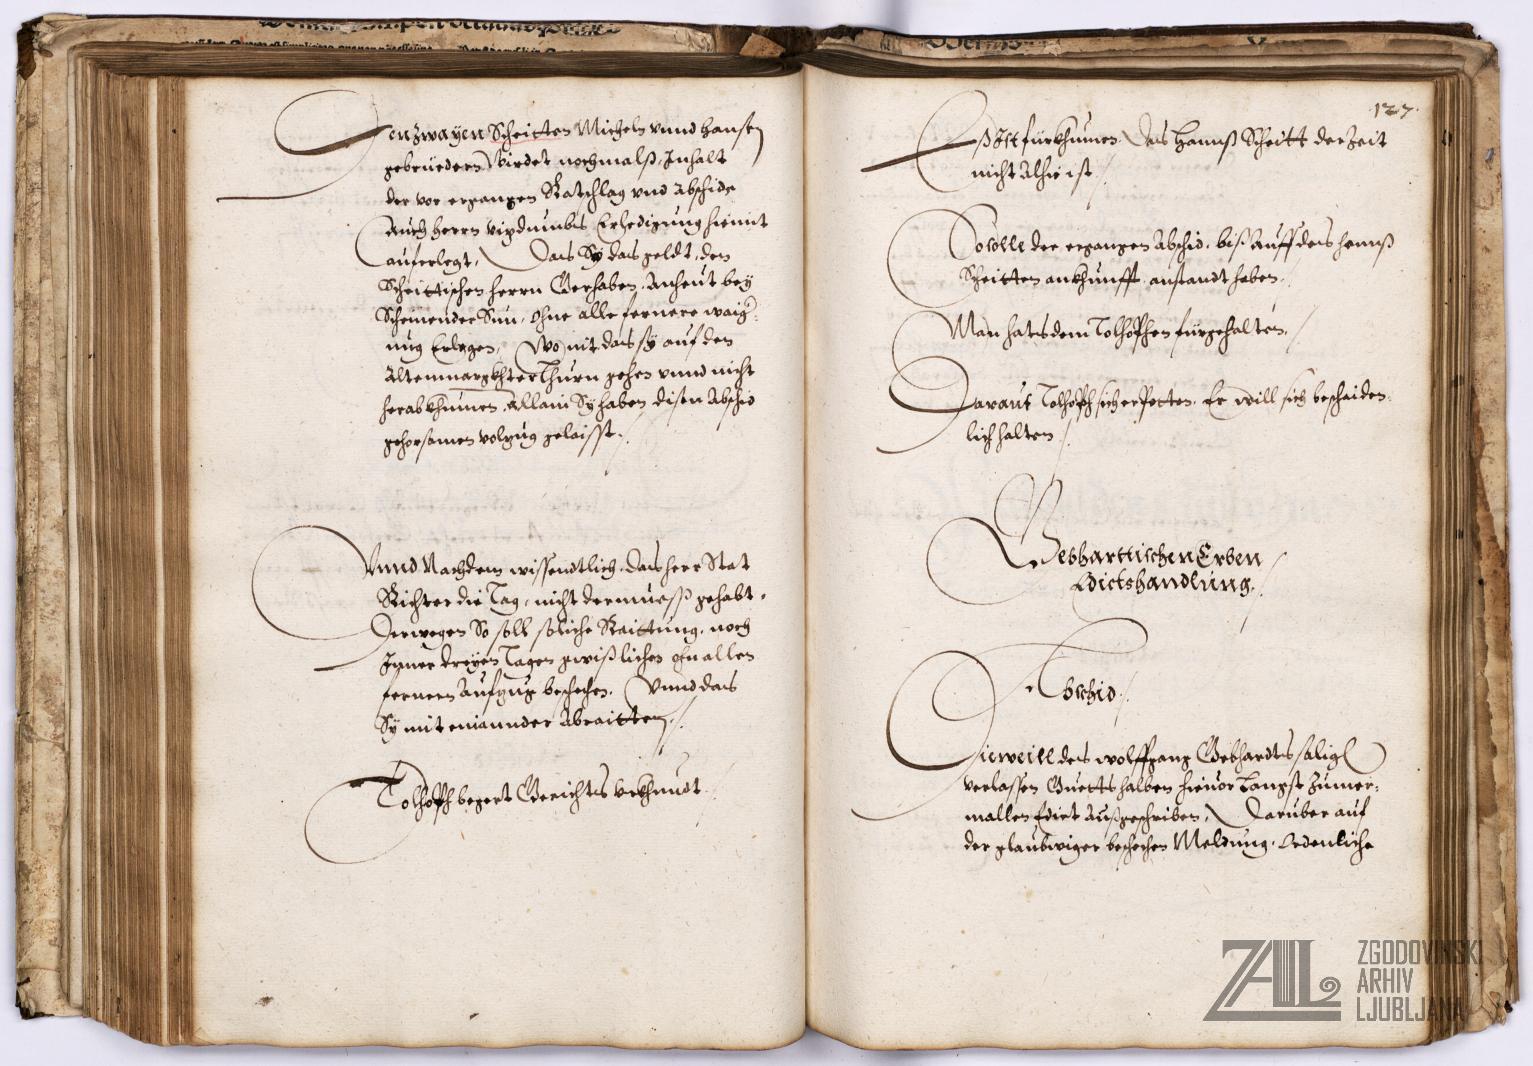 Den zwayen Scheitten Micheln vnnd Hansen
gebrüedern Wirdet nochmalß, Inhalt
der vor ergangen Ratschlag vnd Abschide
Auch herrn vizdumbs Erledigung hiemit
auferlegt, Das Sy das geldt, den
Scheittischen herrn Gerhaben, Anheut bey
Scheinender Sun, ohne alle fernere waig-
nug Erlegen, Wo nit das sy auf den
Altenmargkhter Thurn gehen vnnd nicht
herab khumen, Allain Sy haben disen Abschid
gehorsamen volzug gelaisst.
Vnnd Nachdem wissentlich, das herr Stat
Richter die Tag, nicht der muess gehabt,
Derwegen So soll soliche Raittung, noch
Inner dreyen Tagen gwißlichen ohn allen
fernern Aufzug beschehen, Vnnd das
Sy mit einannder Abraitten.
Tolhopff begert Gerichts vrkhundt.
127.
Eß Ist fürkhumen, das Hannß Scheitt der Zeit
nicht Alhie ist.
So solle der ergangen Abschid, biß Auff des Hannß
Scheitten ankhunfft, anstandt haben.
Man hats dem Tolhopffen fürgehalten.
Darauf Tolhopff sich erpotten, Er will sich beschaiden-
lich halten.
Gebharttischen Erben
Edictshandlung.
Abschid.
Dieweill des wolffgang Gebhardts salig
verlassen Guetts halben hieuor Langst zumer-
mallen Edict Außgeschriben, Darüber auf
der glaubwiger beschehen Meldung, Ordenliche
ZAL
ZGODOVINSKI
ARHIV
LJUBLJANA